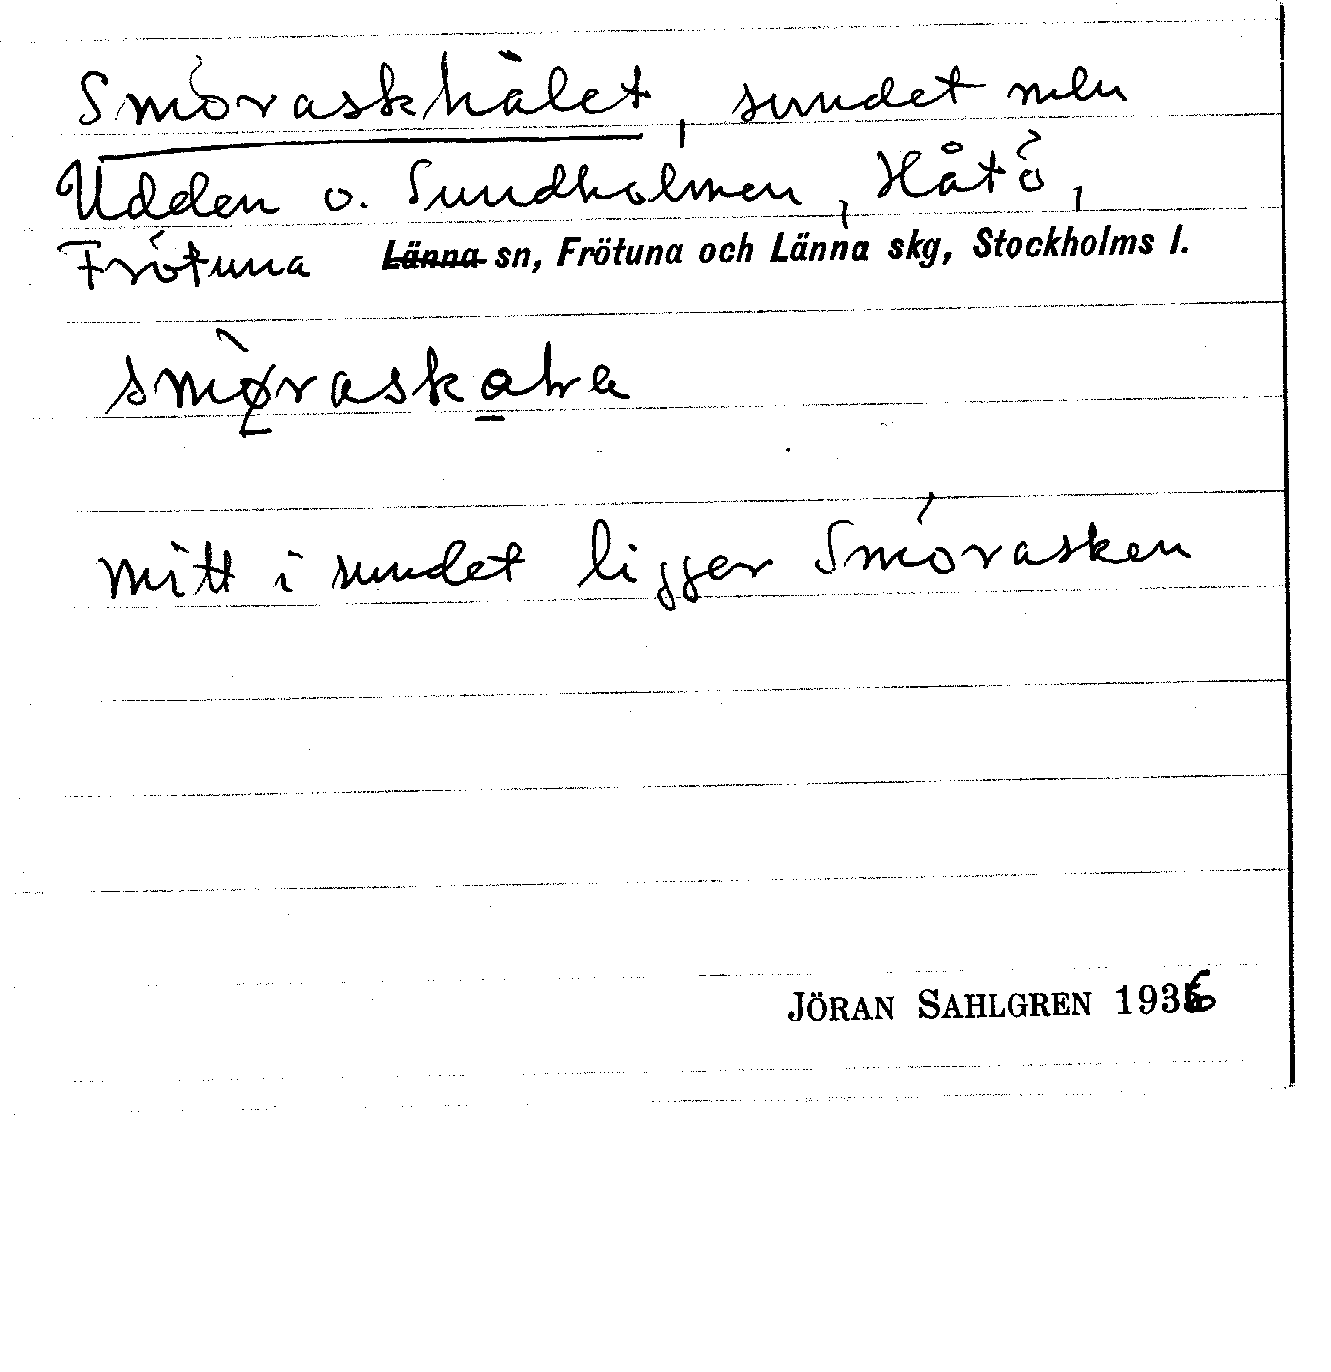 Smöraskhålet, sundet mln
Udden o. Sundholmen, Håtö,
Frötuna Länna sn, Frötuna och Länna skg, Stockholms l.
Mitt i sundet ligger Smörasken
JÖRAN SAHLGREN 1936